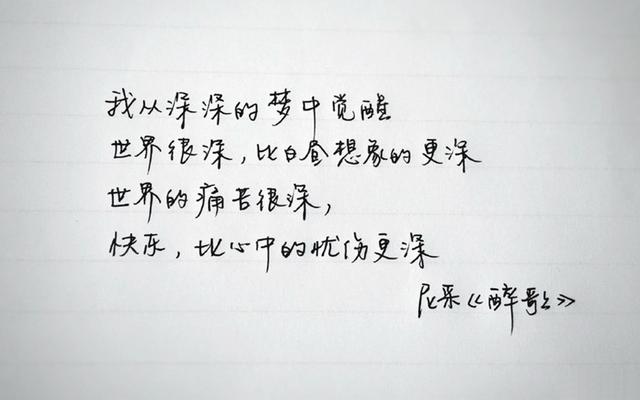 我从深深的梦中觉醒
世界很深，比白昼想象的更深
世界的痛苦很深，
快乐，比心中的忧伤更深
尼采《醉歌》